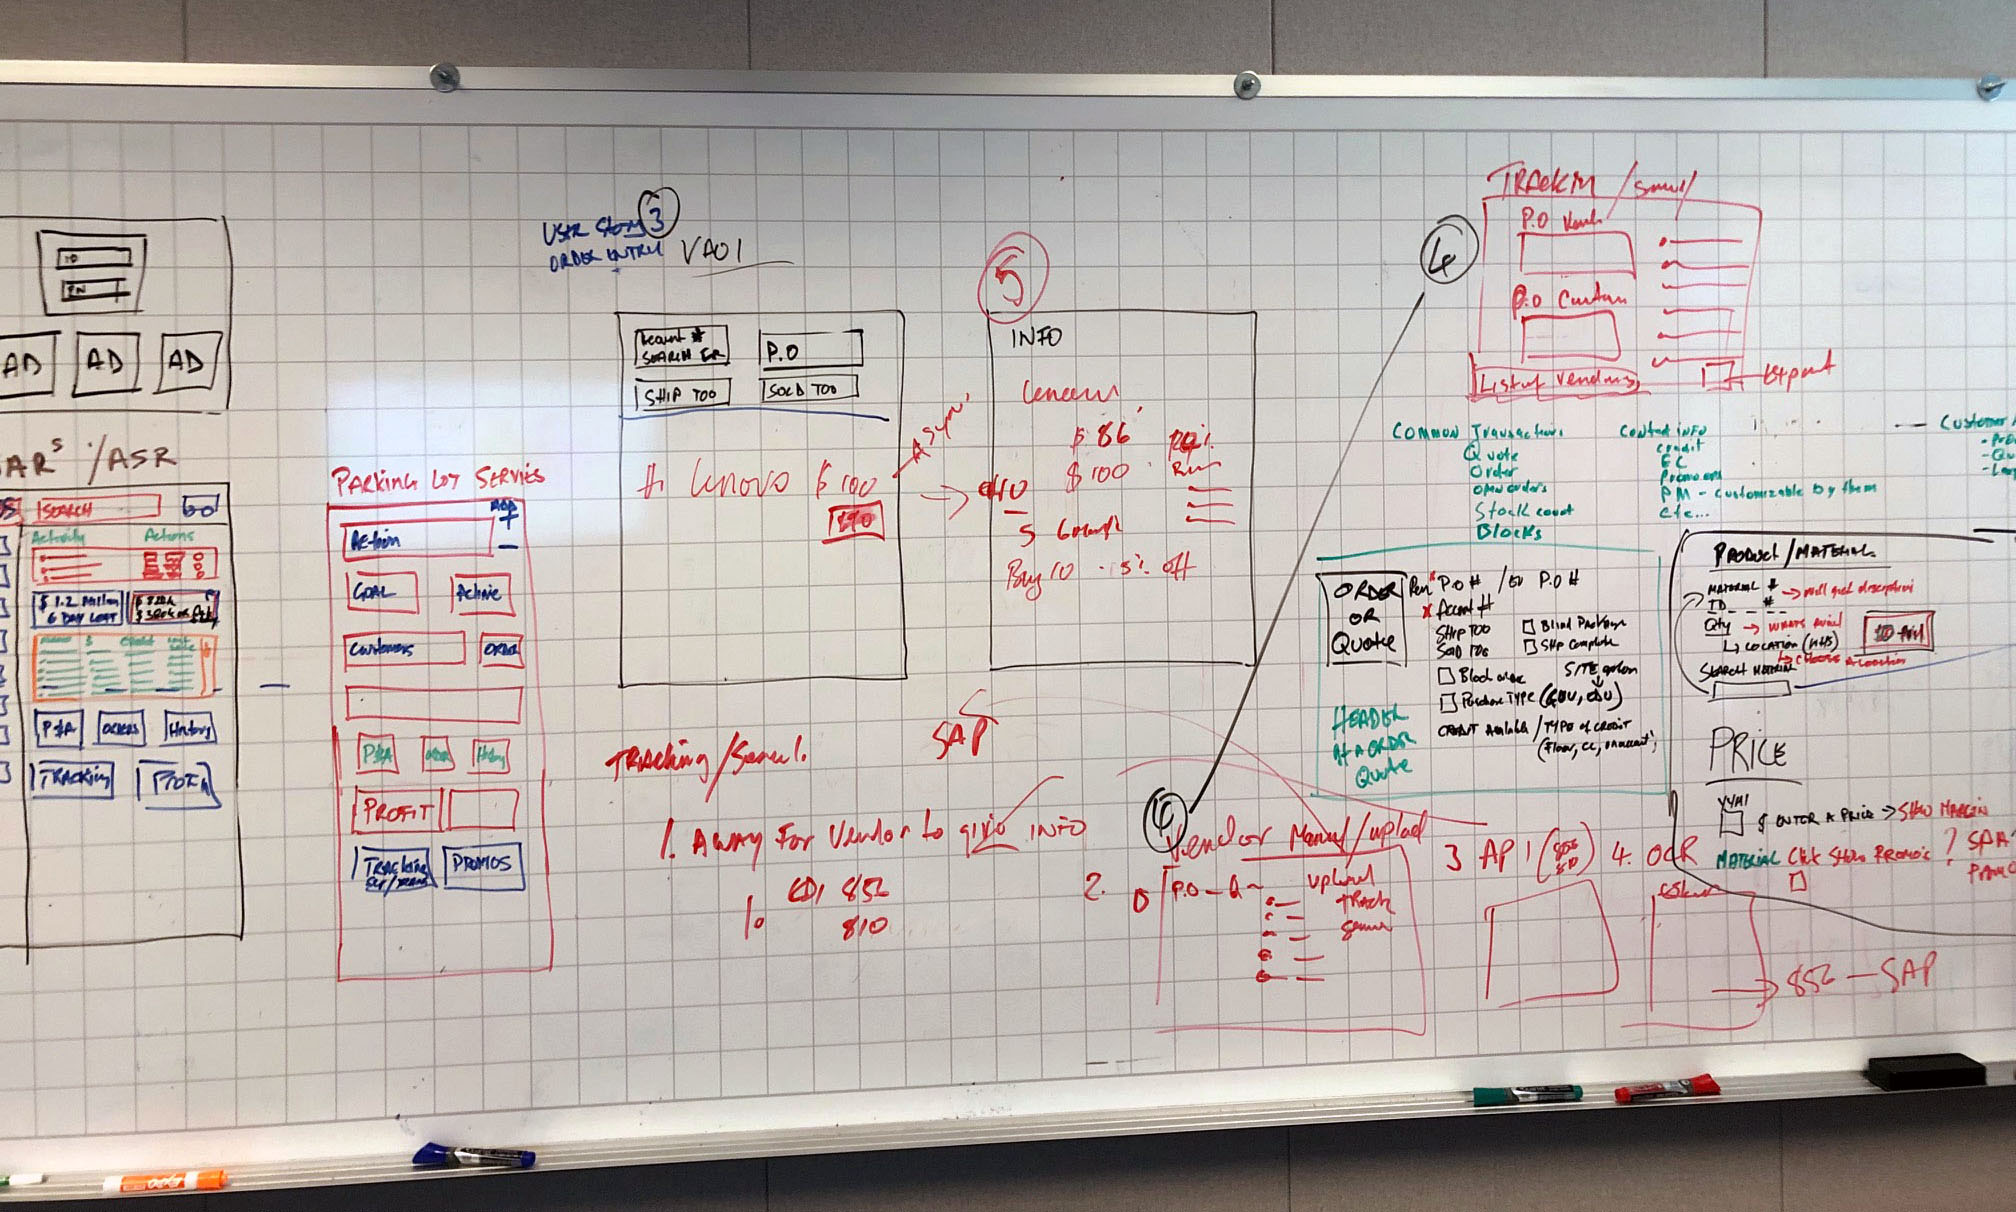 ID
PW
AD
AD
AD
AR'S /ASR
SEARCH
GO
Activity
Actions
$1.2 Million
6 DAY LEFT
P&A
ORDERS
History
TRACKING
PARKING LOT SERVIES
ADD
+
Action
−
GOAL
Active
Customers
ORDER
P&A
History
PROFIT
TRACKING
PROMOS
USER Story 3
ORDER ENTRY
VA01
SEARCH
P.O
SHIP TOO
SOLD TOO
1. Lenovo $100
Async
5
INFO
Lenovo
$86
$100
Buy 10 - 5% off
4
TRACKIN /Serial
P.O Vend
P.O Custom
List of Vendors
Export
COMMON Transactions
Quote
Order
OPEN ORDERS
Stock count
Blocks
Contact INFO
credit
Promotions
PM - Customizable by them
etc...
Customer
ORDER
OR
Quote
P.O # / EU P.O #
* Account #
SHIP TOO
SOLD TOO
Blind Package
Ship Complete
Block order
Purchase TYPE (GOV, EDU)
CREDIT Available / TYPE of CREDIT
(Floor, CC,
HEADER
At a ORDER
Quote
PRODUCT/MATERIAL
MATERIAL # → Will get description
ID #
Qty → WHATS AVAIL
↳ LOCATION (WHS)
↳ CHOOSE A Location
SEARCH MATERIAL
PRICE
$ ENTER A PRICE → SHOW MARGIN
MATERIAL Click Show PROMO'S ?
SAP
TRACKING/Serial.
1. A WAY FOR Vendor to give INFO
1. EDI 856
810
4
Vendor Manual/upload
2.
P.O
upload
TRACK
Serial
3 API
4. OCR
→ 856 — SAP